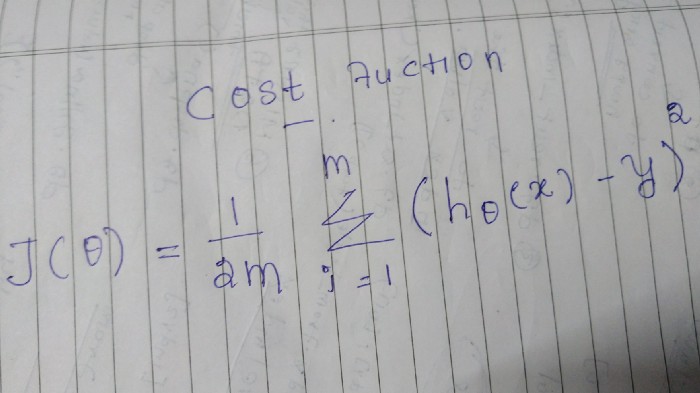 Cost Fuction
J(θ) = 1/2m m∑i=1 (hθ(x) - y)²